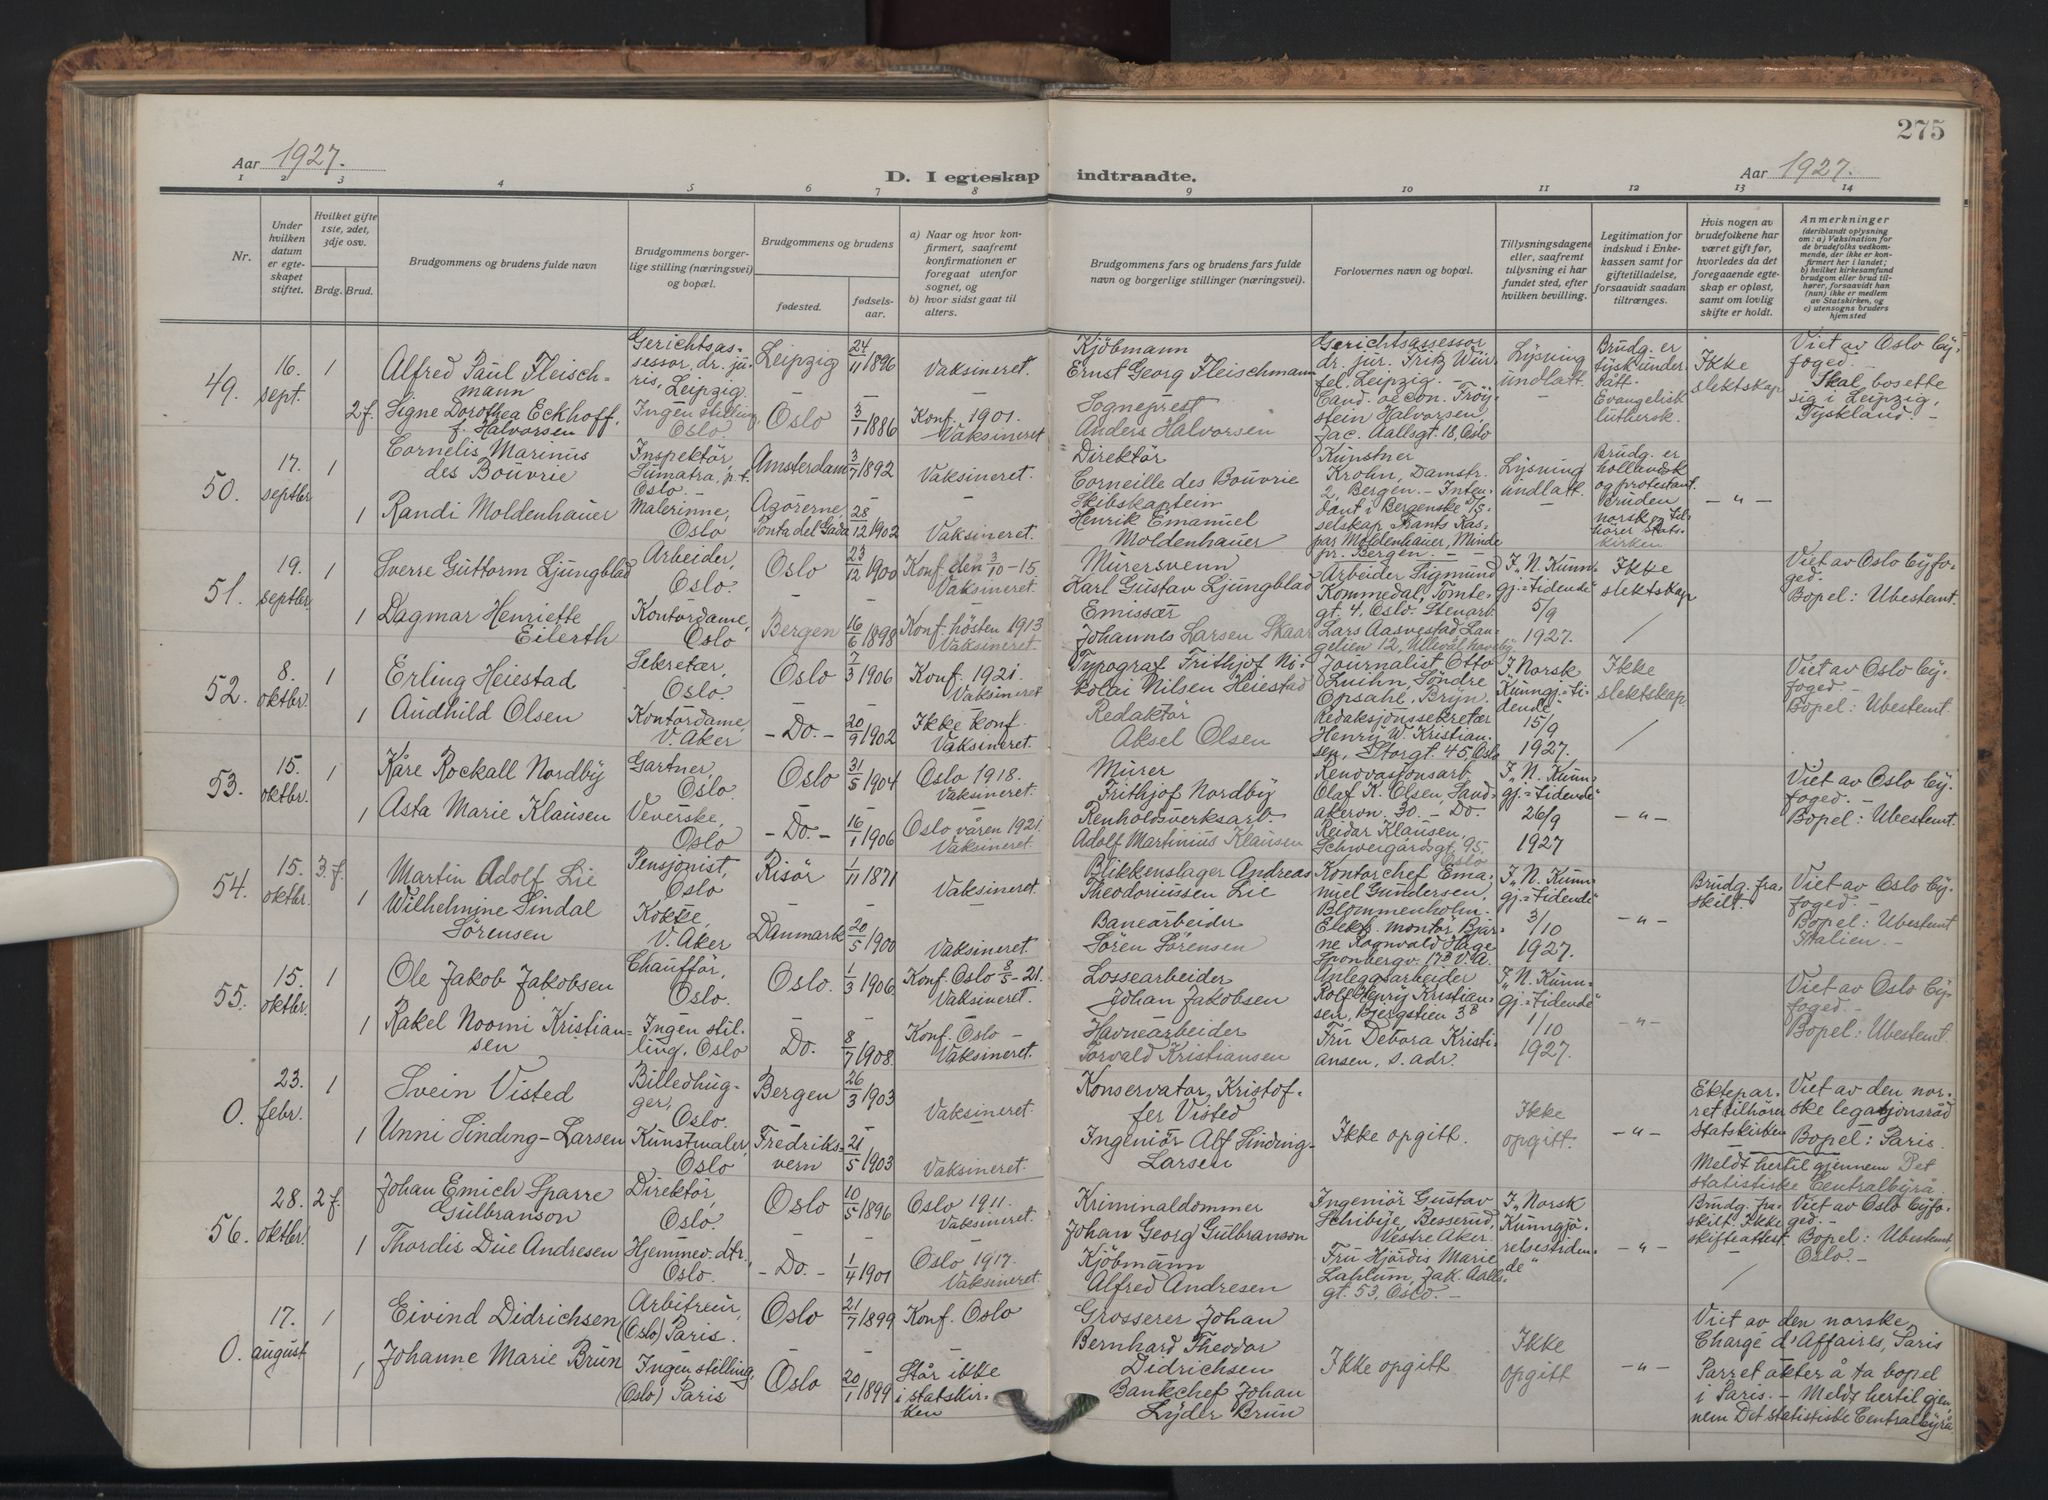 275
Aar 1927.
D. I egteskap indtraadte.
Aar 1927.
1 2 3 4 5 6 7 8 9 10 11 12 13 14
Nr.
Under hvilken datum er egteskapet stiftet.
Hvilket gifte 1ste, 2det, 3dje osv.
Brdg. Brud.
Brudgommens og brudens fulde navn
Brudgommens borgerlige stilling (næringsvei) og bopæl.
Brudgommens og brudens
fødested.
fødselsaar.
a) Naar og hvor konfirmert, saafremt konfirmationen er foregaat utenfor sognet, og
b) hvor sidst gaat til alters.
Brudgommens fars og brudens fars fulde navn og borgerlige stillinger (næringsvei).
Forlovernes navn og bopæl.
Tillysningsdagene eller, saafremt tillysning ei har fundet sted, efter hvilken bevilling.
Legitimation for indskud i Enkekassen samt for giftetilladelse, forsaavidt saadan tiltrænges.
Hvis nogen av brudefolkene har været gift før, hvorledes da det foregaaende egteskap er opløst, samt om lovlig skifte er holdt.
Anmerkninger
(deriblandt oplysning om: a) Vaksination for de brudefolks vedkommende, der ikke er konfirmert her i landet;
b) hvilket kirkesamfund brudgom eller brud tilhører, forsaavidt han (hun) ikke er medlem av Statskirken, og
c) utensogns bruders hjemsted
49.
16. sept.
1
Alfred Paul Fleischmann
Gerichtsassessor, dr. juris, Leipzig.
Leipzig
24/11 1896
Vaksineret.
Kjøbmann
Ernst Georg Fleischmann
Gerichtsassessor dr. jur. Fritz Würfel, Leipzig. –
Lysning undlatt.
Brudg. er tysk undersått. Evangelisk luthersk.
Ikke slektskap
Viet av Oslo Byfoged.
Skal bosette sig i Leipzig, Tyskland. –
2 f.
Signe Dorothea Eckhoff, f. Halvorsen
Ingen stilling, Oslo.
Oslo
3/1 1886
Konf. 1901. Vaksineret
Sogneprest
Anders Halvorsen
Cand. oecon. Frøystein Halvorsen, Jac. Aallsgt. 18, Oslo
50.
17. septbr
1
Cornelis Marinus des Bouvrie
Inspektør, Sumatra, p.t. Oslo.
Amsterdam
3/7 1892
Vaksineret.
Direktør
Corneille des Bouvrie
Kunstner Krohn, Damstr. 2, Bergen. –
Lysning undlatt.
Brudg. er hollandsk og protestant. Bruden norsk og tilhører statskirken
– " –
1
Randi Moldenhauer
Malerinne, Oslo
Azorerne, Ponta del Gada
28/12 1902
Vaksineret.
Skibskaptein
Henrik Emanuel Moldenhauer
Intendant i Bergenske D/S selskap Hants Kaspar Moldenhauer, Minde pr. Bergen. –
51.
19. septbr
1
Sverre Guttorm Ljungblad
Arbeider, Oslo.
Oslo
23/12 1900
Konf. den 3/10 – 15 Vaksineret.
Murersvenn
Karl Gustav Ljungblad
Arbeider Sigmund Kommedal, Tomtegt. 4, Oslo.
I „N. Kunngj.=tidende" 5/9 1927.
Ikke slektskap
Viet av Oslo Byfoged.
Bopel: Ubestemt.
1
Dagmar Henriette Eilerth
Kontordame, Oslo
Bergen
16/6 1898
Konf. høsten 1913 Vaksineret.
Emissær
Johannes Larsen Skaar
Stenarb. Lars Aasvestad, Langelien 12, Ullevål haveby.
52.
8. oktbr
1
Erling Heiestad
Sekretær, Oslo.
Oslo
7/3 1906
Konf. 1921. Vaksineret
Typograf Frithjof Nikolai Nilsen Heiestad
Journalist Otto Luihn, Søndre Opsahl, Bryn.
I „Norsk Kunngj.=tidende" 15/9 1927.
Ikke slektskap.
Viet av Oslo Byfoged. –
Bopel: Ubestemt.
1
Audhild Olsen
Kontordame, V. Aker
– Do. –
20/9 1902
Ikke konf. Vaksineret.
Redaktør
Aksel Olsen
Redaksjonssekretær Henry W. Kristiansen, Storgt. 45, Oslo
53.
15. oktbr.
1
Kåre Rockall Nordby
Gartner, Oslo.
Oslo
31/5 1904
Oslo 1918. Vaksineret.
Murer
Frithjof Nordby
Renovasjonsarb. Olaf K. Olsen, Sandakerv. 30. – Do.
I „N. Kunngj.=tidende" 26/9 1927
– " –
Viet av Oslo Byfoged. –
Bopel: Ubestemt.
1
Asta Marie Klausen
Veverske, Oslo
– Do. –
16/1 1906
Oslo våren 1921. Vaksineret.
Renholdsverksarb.
Adolf Martinius Klausen
Reidar Klausen, Schweigårdsgt. 95, Oslo
54.
15. oktbr.
3. f.
Martin Adolf Lie
Pensjonist, Oslo
Risør
1/11 1871
Vaksineret.
Blikkenslager Andreas Theodoriussen Lie
Kontorchef Emanuel Gundersen, Blommenholm.
I „N. Kunngj.=tidende" 3/10 1927.
– " –
Brudg. fraskilt.
Viet av Oslo Byfoged. –
Bopel: Ubestemt Italien. –
1
Wilhelmine Lindal Sörensen
Kokke, V. Aker
Danmark
20/5 1900
Vaksineret.
Banearbeider
Sören Sörensen
Elektr. montör Bjarne Ragnvald Hage Sponbergv. 17B V. A.
55.
15. oktbr.
1
Ole Jakob Jakobsen
Chauffør, Oslo.
Oslo.
1/3 1906
Konf. Oslo 8/5 – 21. Vaksineret.
Lossearbeider
Johan Jakobsen
Anleggsarbeider Rolf Henry Kristiansen, Bjergstien 3B
I „N. Kunngj.=tidende" 1/10 1927.
– " –
Viet av Oslo Byfoged. –
Bopel: Ubestemt.
1
Rakel Noomi Kristiansen
Ingen stilling, Oslo
Do.
8/7 1908.
Konf. Oslo – Vaksineret.
Havnearbeider
Torvald Kristiansen
Fru Debora Kristiansen, s. adr.
0.
23. febr.
1
Svein Visted
Billedhugger, Oslo.
Bergen
26/3 1903
Vaksineret.
Konservator, Kristoffer Visted
Ikke opgitt.
Ikke opgitt.
– " –
Ekteparret tilhører Statskirken
Viet av den norske legasjonsråd
Bopel: Paris.
Meldt hertil gjennem Det statistiske Centralbyrå
1
Unni Sinding-Larsen
Kunstmaler, Oslo
Fredriksvern
21/5 1903
Vaksineret.
Ingeniör Alf Sinding-Larsen
56.
28. oktbr.
2 f.
Johan Emich Sparre Gulbranson
Direktör, Oslo.
Oslo
10/5 1896
Oslo 1911. Vaksineret.
Kriminaldommer
Johan Georg Gulbranson
Ingeniör Gustav Schibbye, Besserud, Vestre Aker.
I „Norsk Kunngjørelsestidende"
– " –
Brudg. fraskilt. Ikke skifteattest.
Viet av Oslo Byfoged. –
Bopel: Ubestemt, Oslo. –
1
Thordis Due Andresen
Hjemmev. dtr., Oslo.
– Do. –
1/4 1901
Oslo 1917. Vaksineret.
Kjøbmann
Alfred Andresen
Fru Hjørdis Marie Lahlum, Jak. Aallsgt. 53, Oslo. –
0.
17. august
1
Eivind Didrichsen
Arbitreur, (Oslo) Paris.
Oslo
21/7 1899
Konf. Oslo
Grosserer Johan Bernhard Theodor Didrichsen
Ikke opgitt
Ikke opgitt
– " –
Viet av den norske Chargé d'Affaires, Paris
Parret akter å ta bopel i Paris. – Meldt hertil gjennem Det statistiske Centralbyrå
1
Johanne Marie Brun
Ingen stilling, (Oslo) Paris
Oslo
20/1 1899
Står ikke i statskirken
Bankchef Johan Lyder Brun